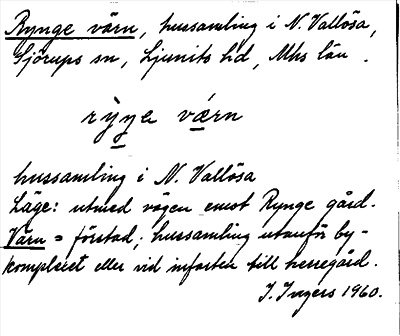 Rynge värn, hussamling i N. Vallösa,
Sjörups sn, Ljunits hd, Mhs län.
rỳŋe værn
hussamling i N. Vallösa
Läge: utmed vägen emot Rynge gård.
Värn = förstad; hussamling utanför by-
komplexet eller vid infarten till herregård.
I. Ingers 1960.